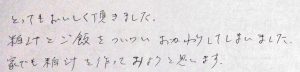 とってもおいしく頂きました。
粕汁とご飯をついついおかわりしてしまいました。
家でも粕汁を作ってみようと思います。